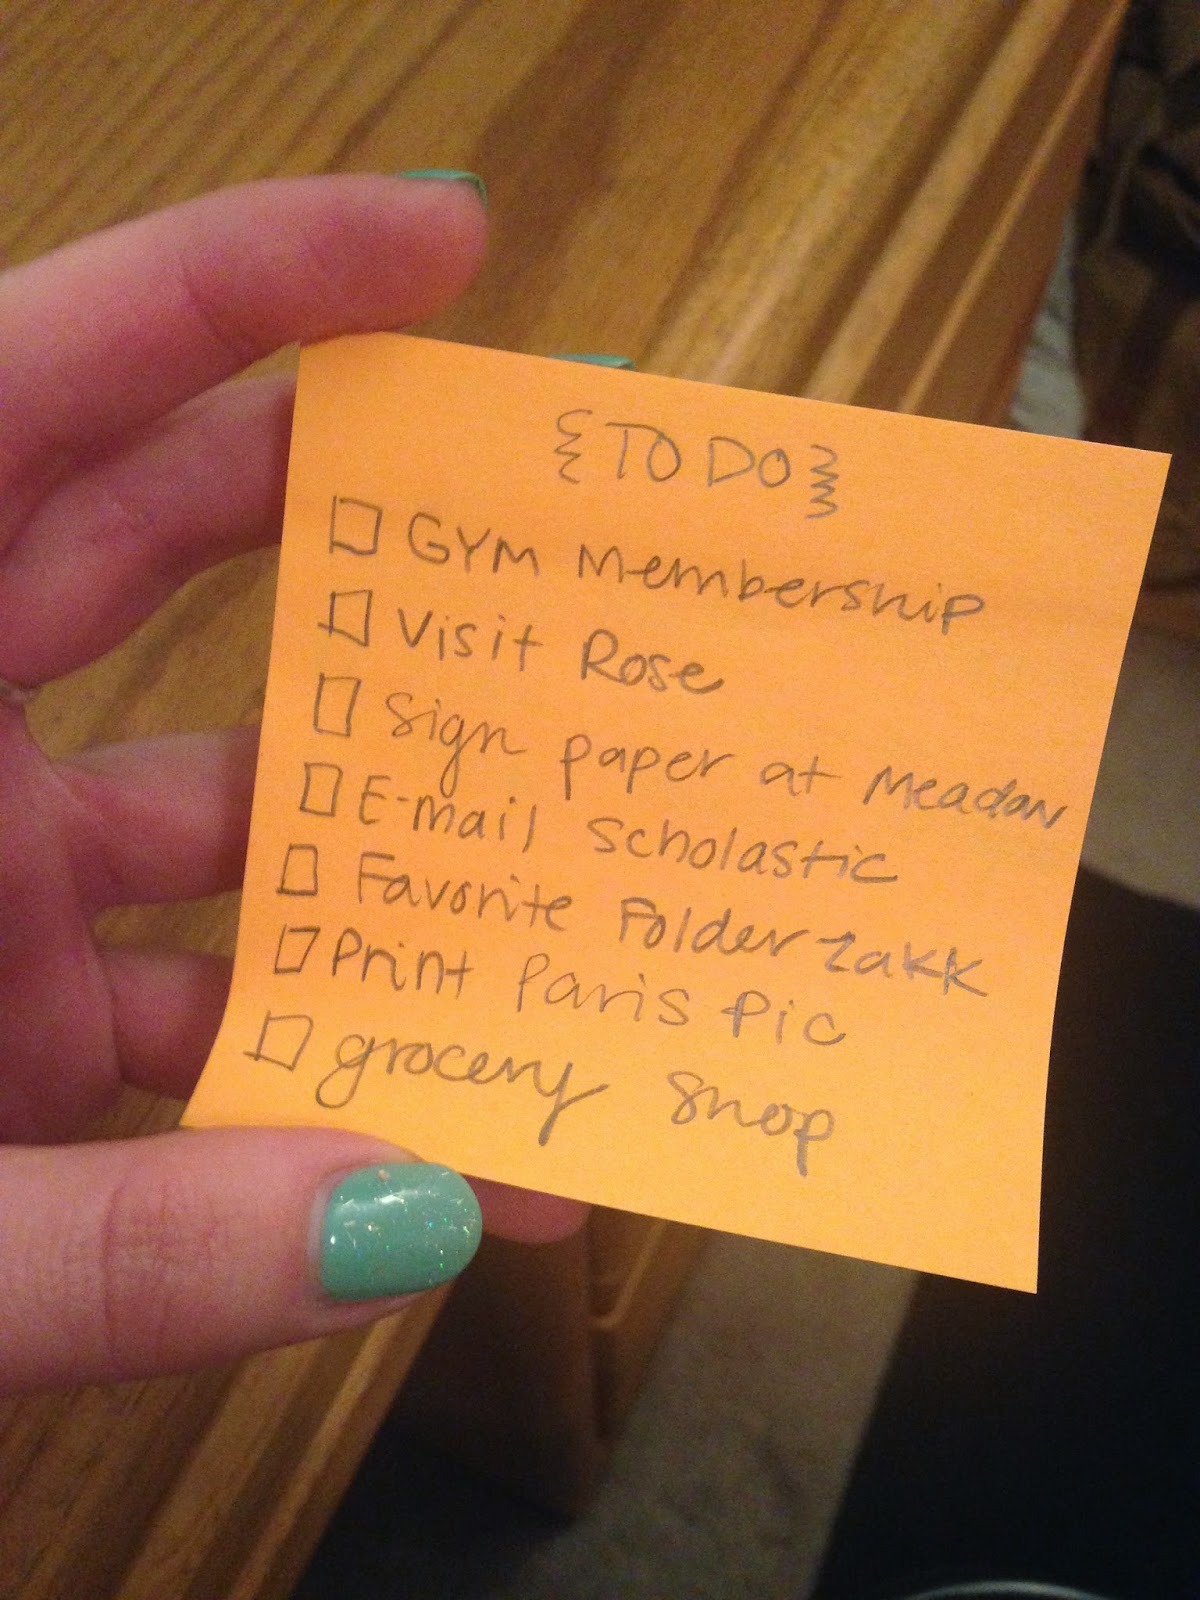 {TO DO}
☐ GYM Membership
☐ Visit Rose
☐ Sign paper at Meadow
☐ E-mail Scholastic
☐ Favorite Folder Zakk
☐ Print Paris Pic
☐ grocery shop